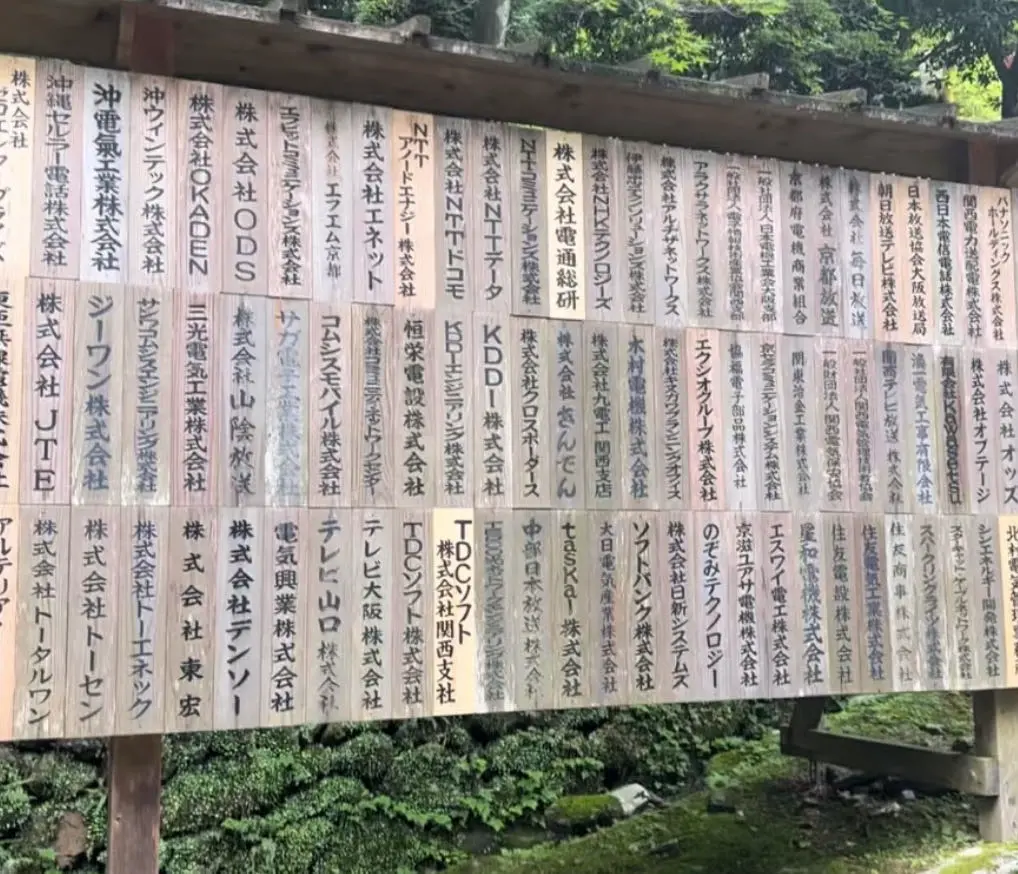 パナソニック ホールディングス株式会社
関西電力送配電株式会社
西日本電信電話株式会社
日本放送協会大阪放送局
朝日放送テレビ株式会社
株式会社毎日放送
株式会社京都放送
京都府電機商業組合
アラクサラネットワークス株式会社
株式会社アルチザネットワークス
株式会社NHKテクノロジーズ
株式会社電通総研
NTTコミュニケーションズ株式会社
株式会社NTTデータ
株式会社NTTドコモ
NTTアノードエナジー株式会社
株式会社エネット
株式会社エフエム京都
株式会社ODS
株式会社OKADEN
沖ウィンテック株式会社
沖電氣工業株式会社
沖縄セルラー電話株式会社
株式会社
株式会社オッズ
株式会社オプテージ
湯一電気工事有限会社
関西テレビ放送株式会社
関東冶金工業株式会社
協福電子部品株式会社
エクシオグループ株式会社
木村電機株式会社
株式会社九電工関西支店
株式会社きんでん
株式会社クロスボーダーズ
KDDI株式会社
KDDIエンジニアリング株式会社
恒栄電設株式会社
コムシスモバイル株式会社
サガ電子工業株式会社
株式会社山陰放送
三光電気工業株式会社
サンワコムシスエンジニアリング株式会社
ジーワン株式会社
株式会社JTE
シンエネルギー開発株式会社
スパークリングライツ株式会社
住友商事株式会社
住友電気工業株式会社
住友電設株式会社
星和電機株式会社
エスワイ電工株式会社
京滋ユアサ電機株式会社
のぞみテクノロジー
株式会社日新システムズ
ソフトバンク株式会社
大日電気産業株式会社
taskar株式会社
中部日本放送株式会社
TDCソフト株式会社関西支社
TDCソフト株式会社
テレビ大阪株式会社
テレビ山口株式会社
電気興業株式会社
株式会社デンソー
株式会社東宏
株式会社トーエネック
株式会社トーセン
株式会社トータルワン
アルテリア